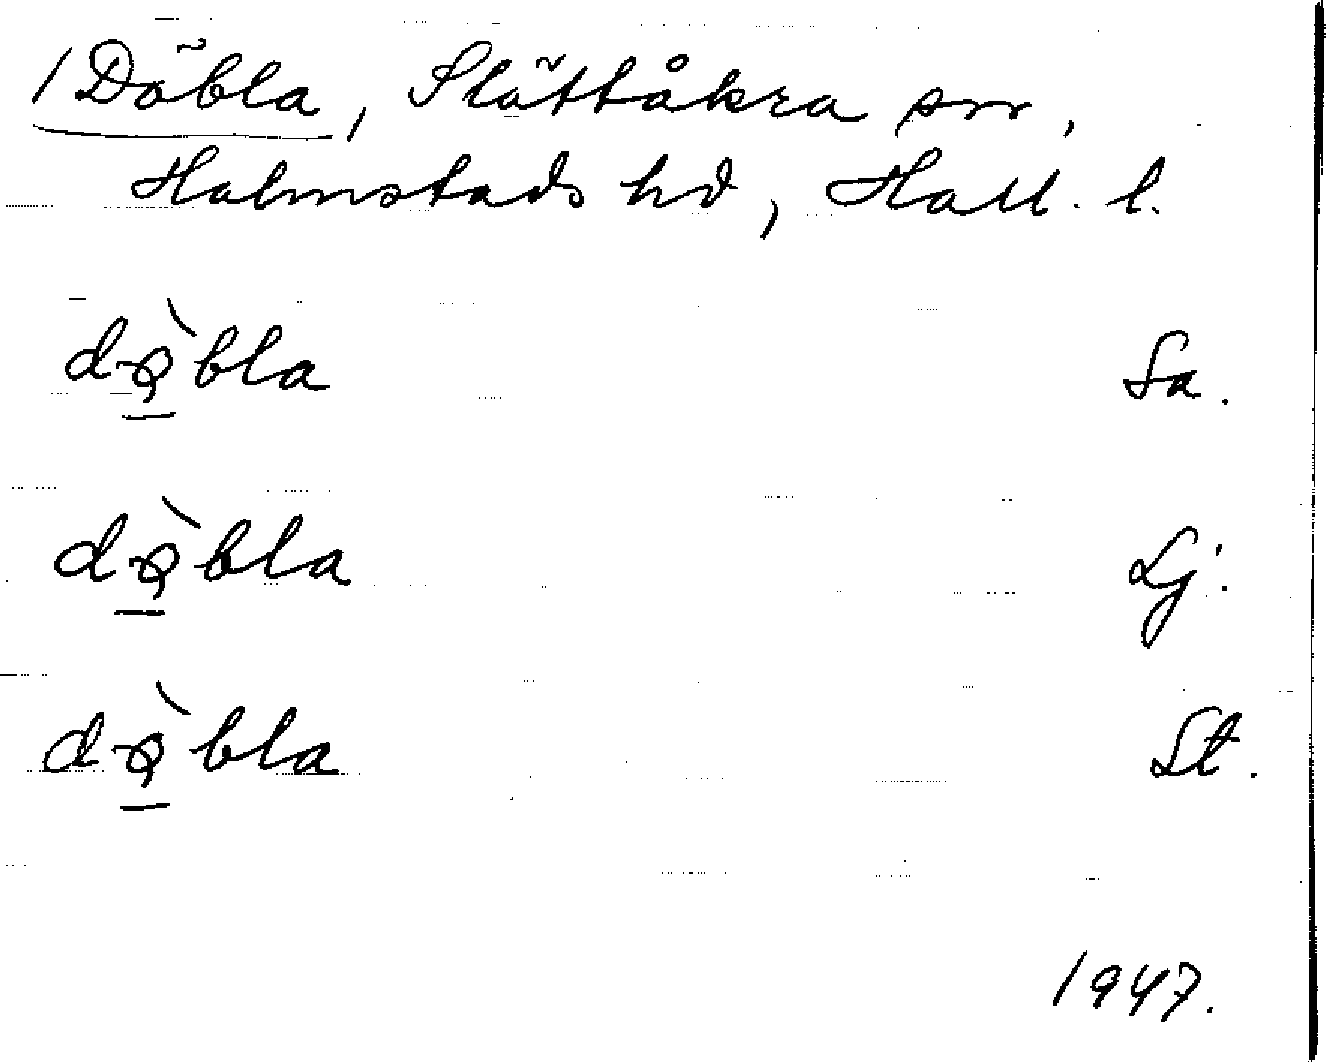 / Döbla, Slättåkra sn,
Halmstads hd, Hall. l.
dø̀bla Sa.
dø̀bla Lj.
dø̀bla St.
1947.